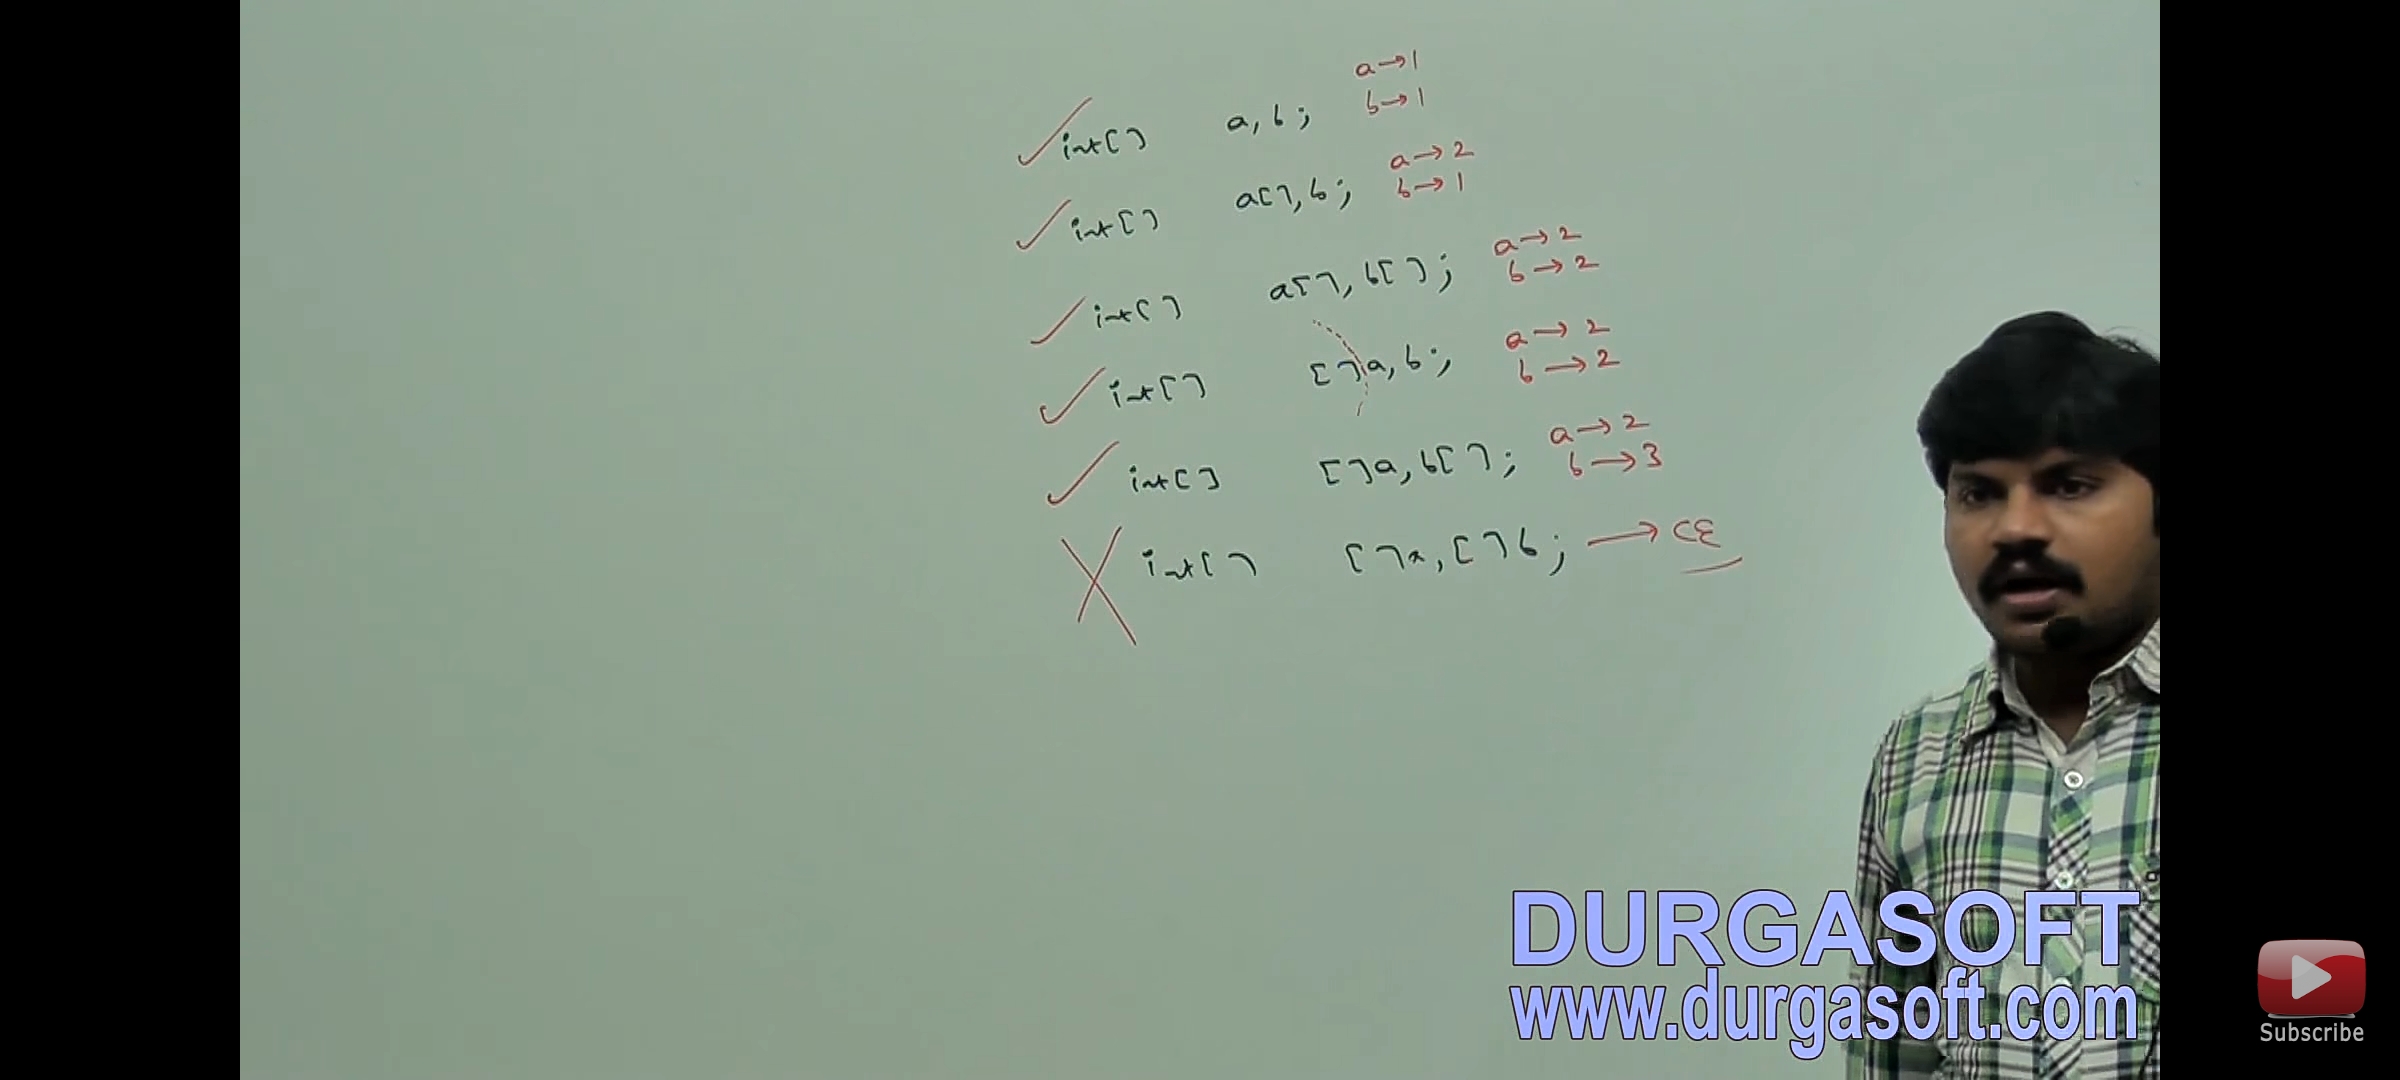 int[] a, b; a→1 b→1
int[] a[], b; a→2 b→1
int[] a[], b[]; a→2 b→2
int[] []a, b; a→2 b→2
int[] []a, b[]; a→2 b→3
int[] []a, []b; → CE
DURGASOFT
www.durgasoft.com
Subscribe